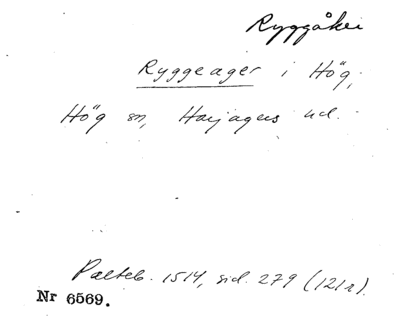 Ryggåker
Ryggeager i Hög,
Hög sn, Harjagers hd.
Palteb. 1514, sid. 279 (121r).
Nr 6569.